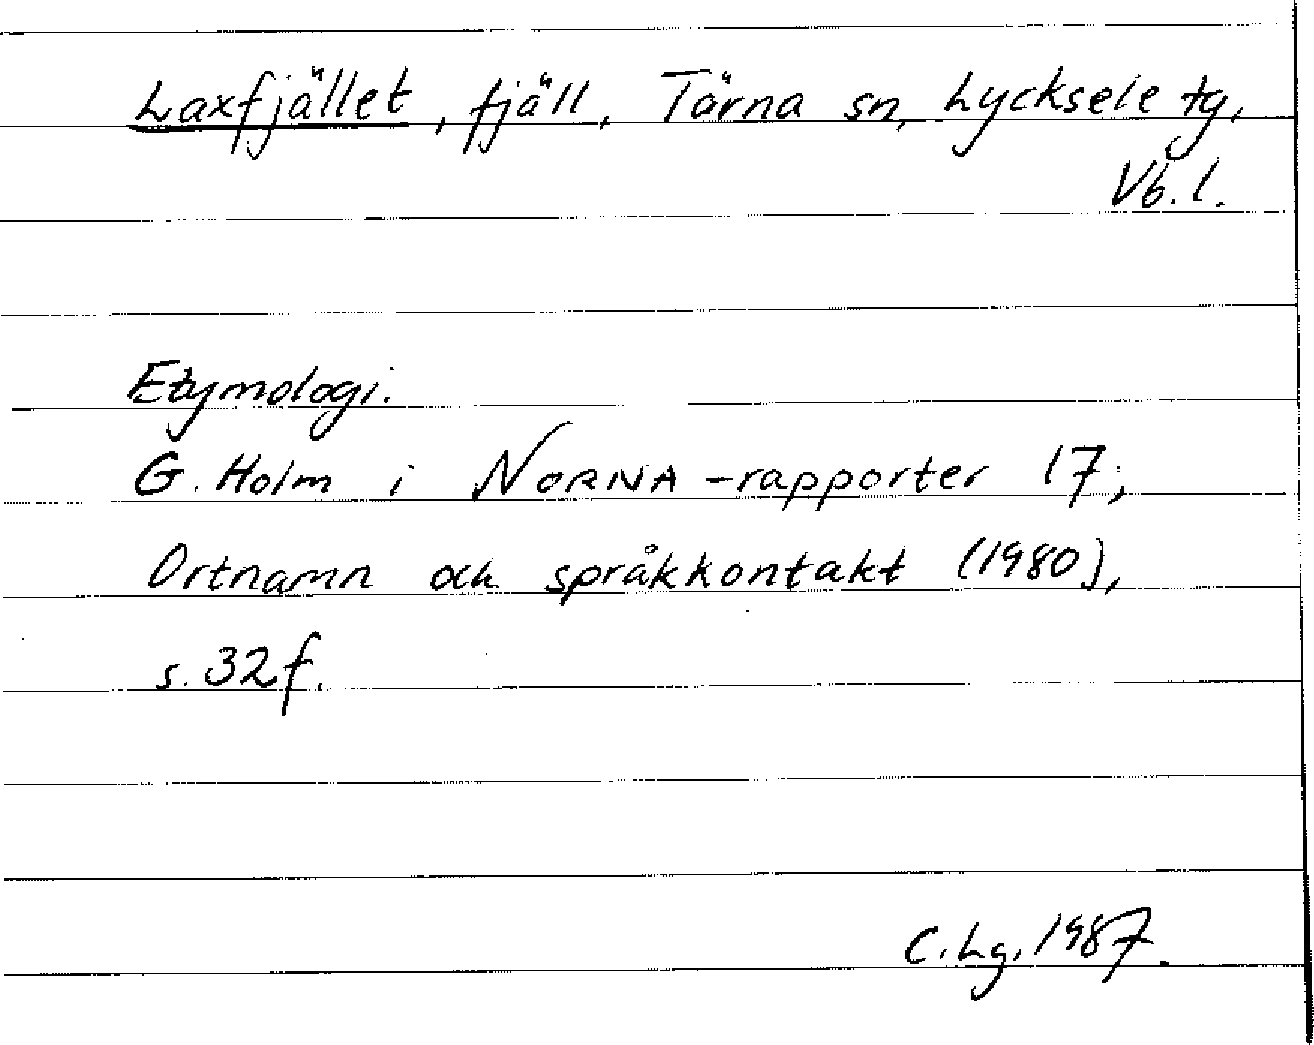 Laxfjället, fjäll, Tärna sn, Lycksele tg,
Vb. l.
Etymologi.
G. Holm i NORNA-rapporter 17;
Ortnamn och språkkontakt (1980),
s. 32 f.
C. Lg. 1987.